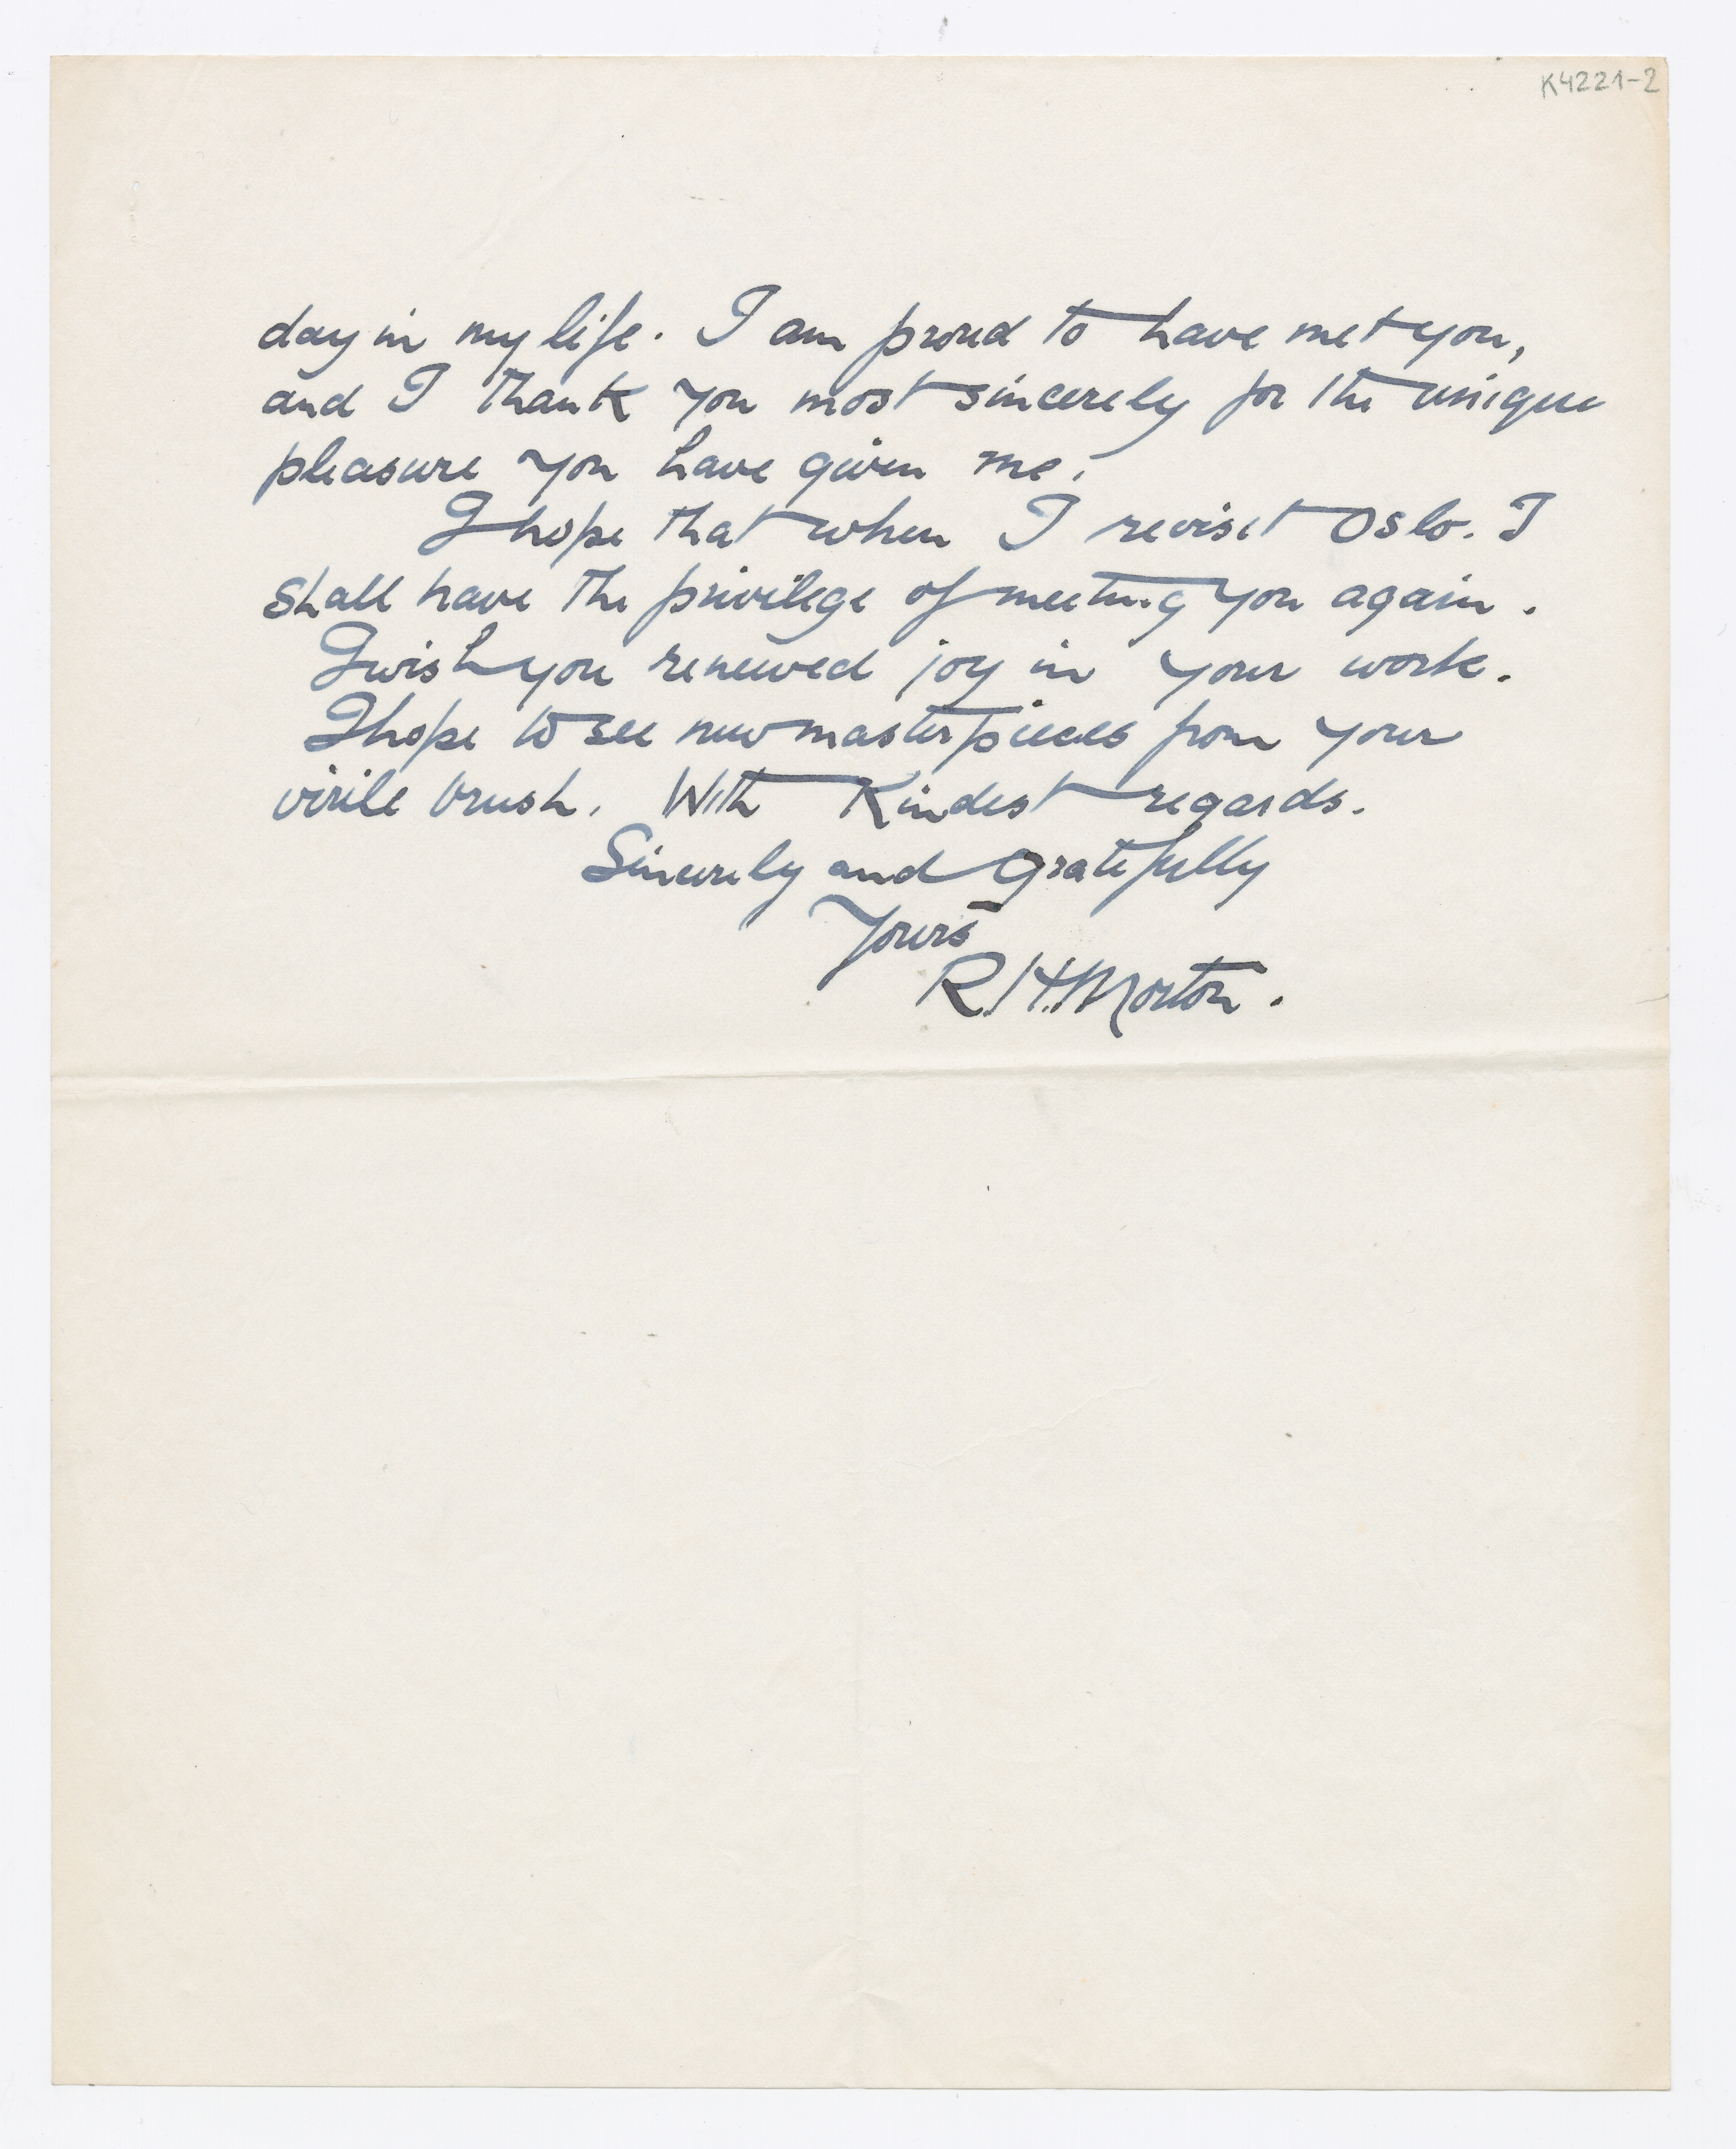 K4221-2
day in my life. I am proud to have met you,
and I thank you most sincerely for the unique
pleasure you have given me.
I hope that when I revisit Oslo. I
shall have the privilege of meeting you again.
I wish you renewed joy in your work.
I hope to see new masterpieces from your
virile brush. With Kindest regards.
Sincerely and Gratefully
Yours
R. H. Morton.